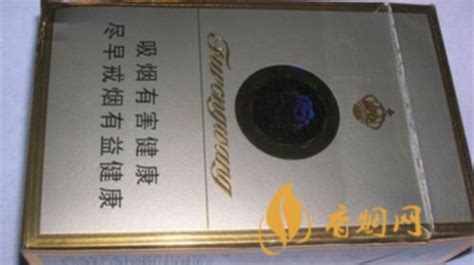 吸烟有害健康
尽早戒烟有益健康
Furongwang
香烟网